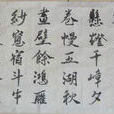 懸燈千嶂夕
卷幔五湖秋
畫壁餘鴻雁
紗窗宿斗牛